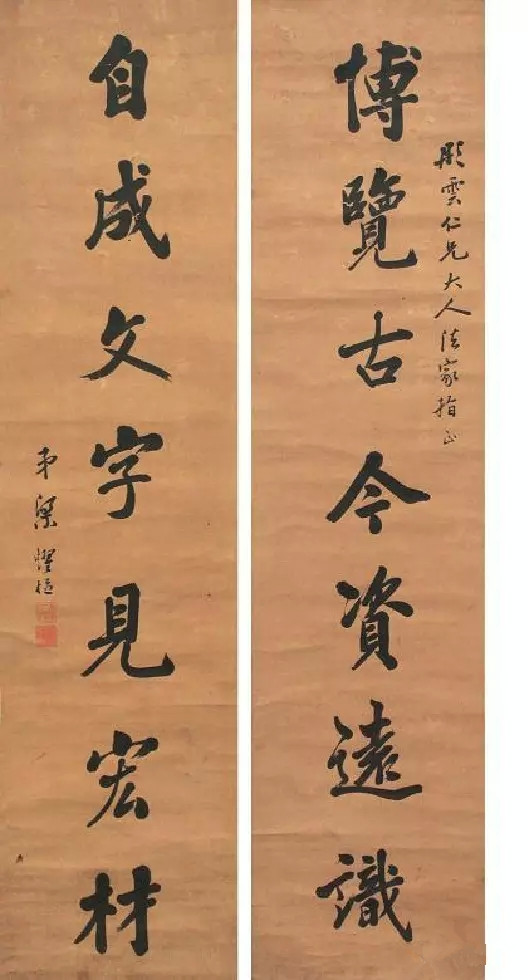 彤雲仁兄大人法家指正
博覽古今資遠識
自成文字見宏材
弟梁燿樞